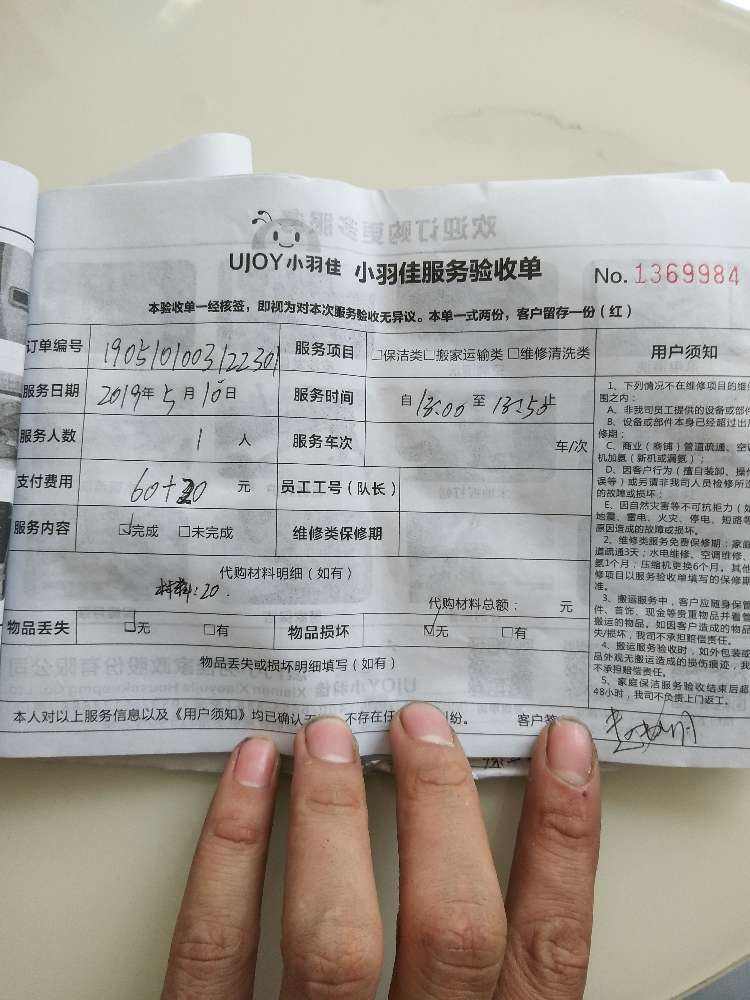 UJOY小羽佳 小羽佳服务验收单 No. 1369984
本验收单一经核签，即视为对本次服务验收无异议。本单一式两份，客户留存一份（红）
订单编号 190510100312230 服务项目 □保洁类□搬家运输类□维修清洗类
服务日期 2019年5月10日 服务时间 自 13:00 至 13:50 止
服务人数 1 人 服务车次 车/次
支付费用 60+20 元 员工工号（队长）
服务内容 ☑完成 □未完成 维修类保修期
代购材料明细（如有）
材料:20.
代购材料总额： 元
物品丢失 ☑无 □有 物品损坏 ☑无 □有
物品丢失或损坏明细填写（如有）
本人对以上服务信息以及《用户须知》均已确认 不存在任 纠纷。 客户签
用户须知
1、下列情况不在维修项目的维
围之内：
A、非我司员工提供的设备或部件
B、设备或部件本身已经超过出
修期；
C、商业（商铺）管道疏通、空
机加氨（新机或漏氨）；
D、因客户行为（擅自装卸、操
误等）或另请非我司人员检修所
的故障或损坏；
E、因自然灾害等不可抗拒力（如
地震、雷电、火灾、停电、短路等
原因造成的故障或损坏。
2、维修类服务免费保修期：家庭
道疏通3天；水电维修、空调维修、
氨1个月；压缩机更换6个月。其他
修项目以服务验收单填写的保修期
准。
3、搬运服务中，客户应随身保管
件、首饰、现金等贵重物品并看管
搬运的物品。如因客户造成的物品
失/损坏，我司不承担赔偿责任。
4、搬运服务验收时，如外包装或
品外观无搬运造成的损伤痕迹，我
不承担赔偿责任。
5、家庭保洁服务验收结束后超
48小时，我司不负责上门返工。